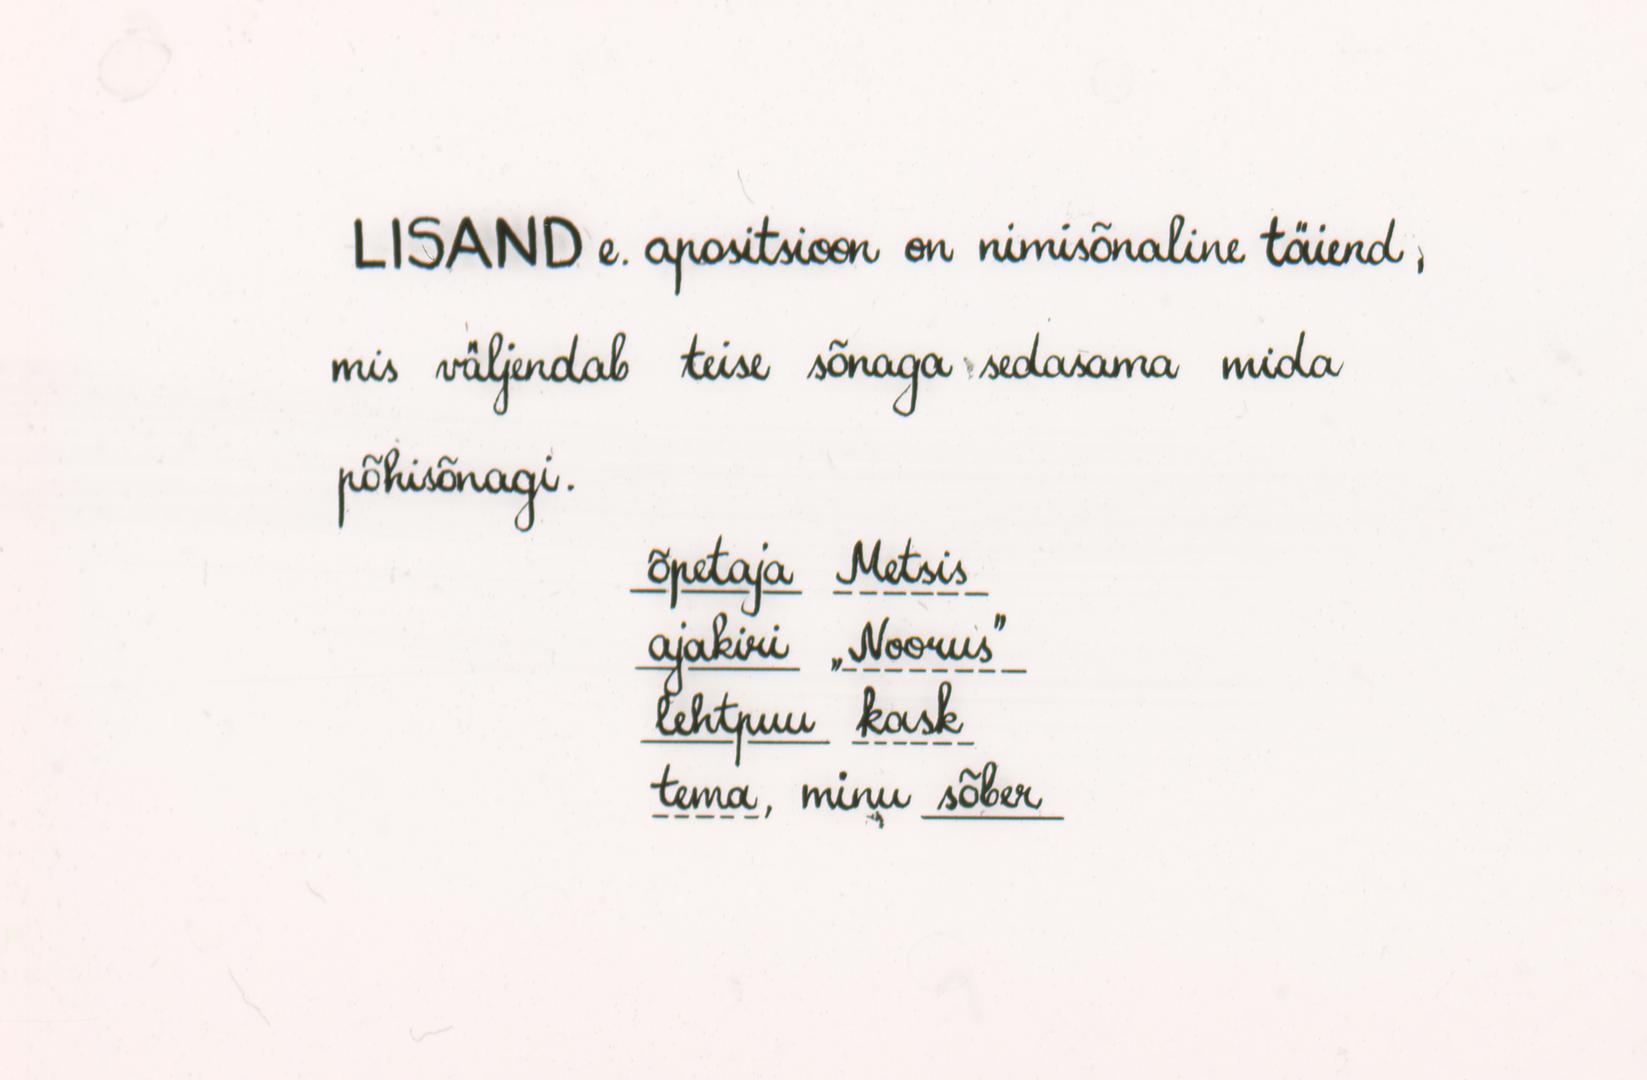 LISAND e. apositsioon on nimisõnaline täiend,
mis väljendab teise sõnaga sedasama mida
põhisõnagi.
õpetaja Metsis
ajakiri „Noorus”
lehtpuu kask
tema, minu sõber